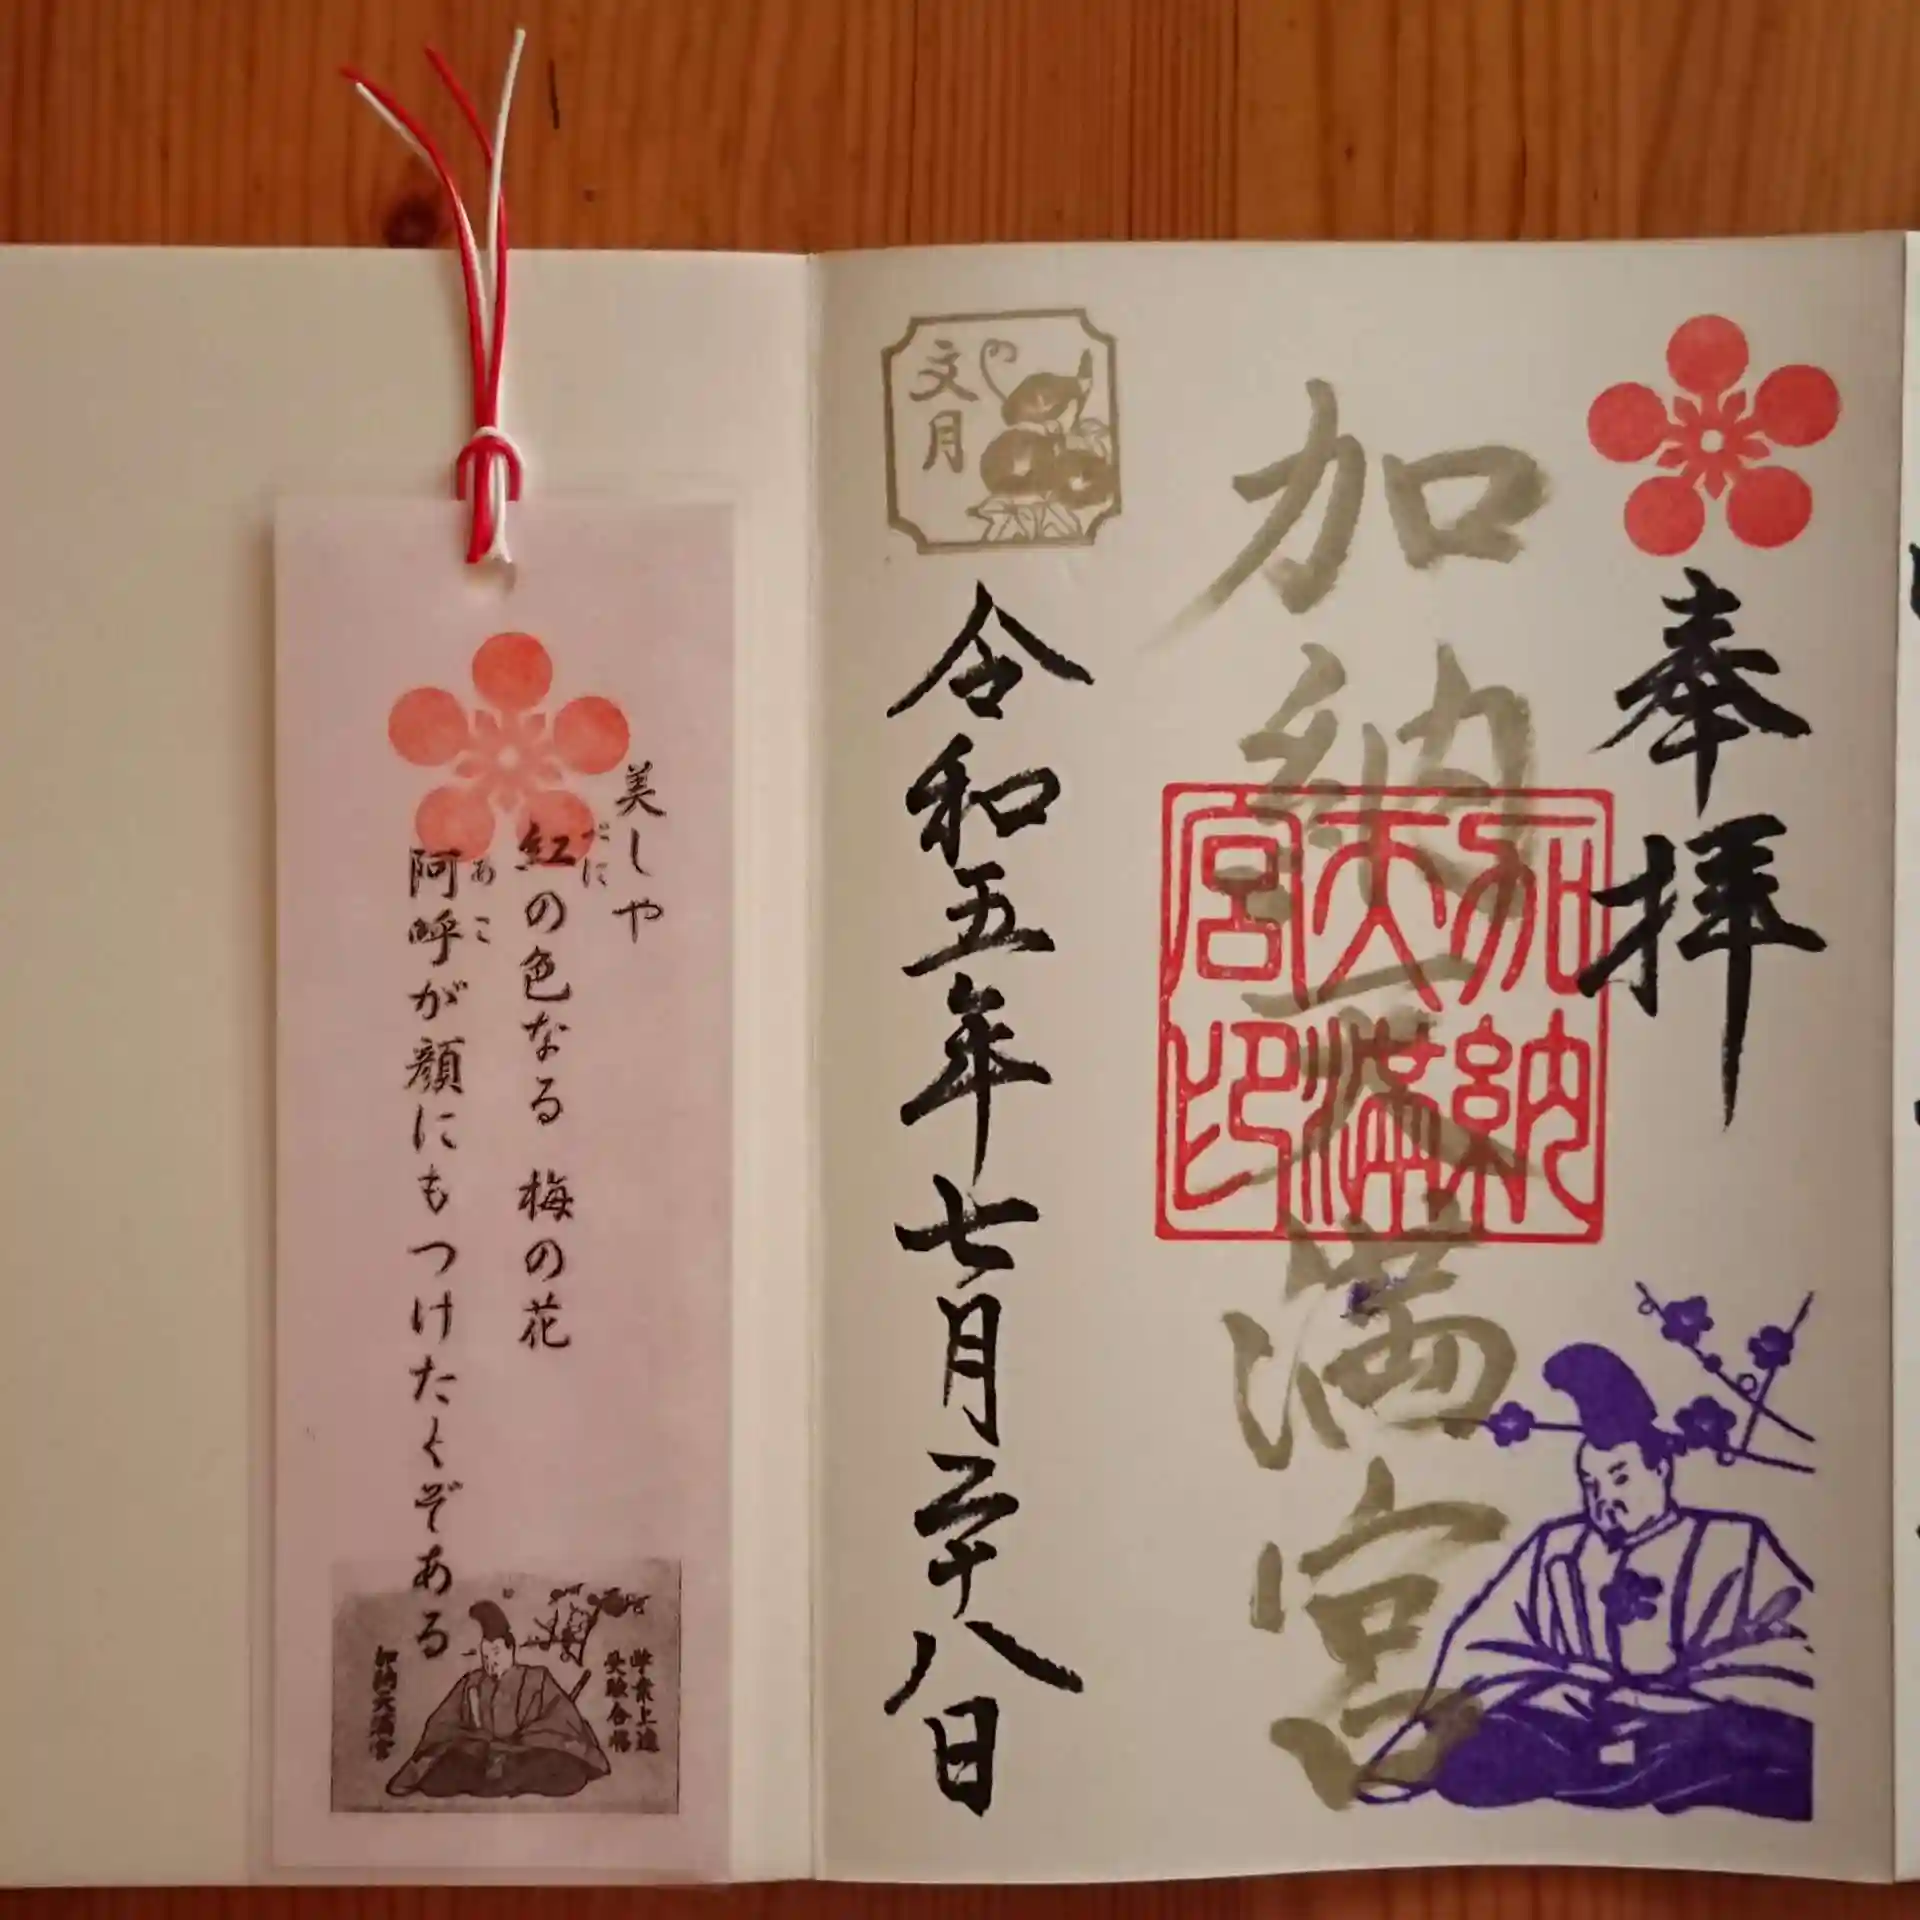 奉拝
加納天満宮
加納
天満
宮印
文月
令和五年七月二十八日
美しや
紅の色なる 梅の花
べに
阿呼が顔にもつけたくぞある
あこ
学業上達
受験合格
加納天満宮